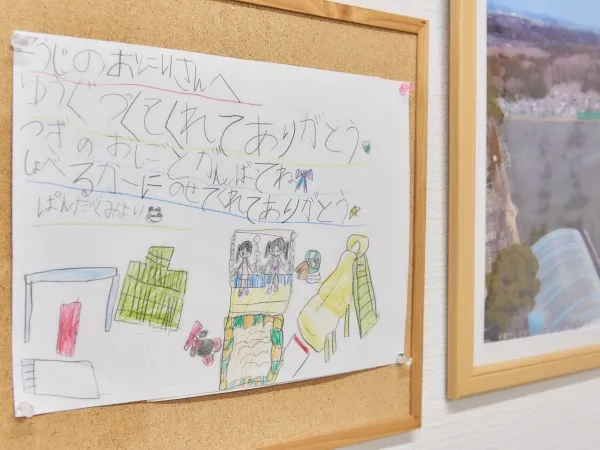 こうじのおにいさんへ
ゆうぐ つくてくれてありがとう
つぎのおしごとがんばてね
しょべるかーにのせてくれてありがとう
ぱんだぐみより